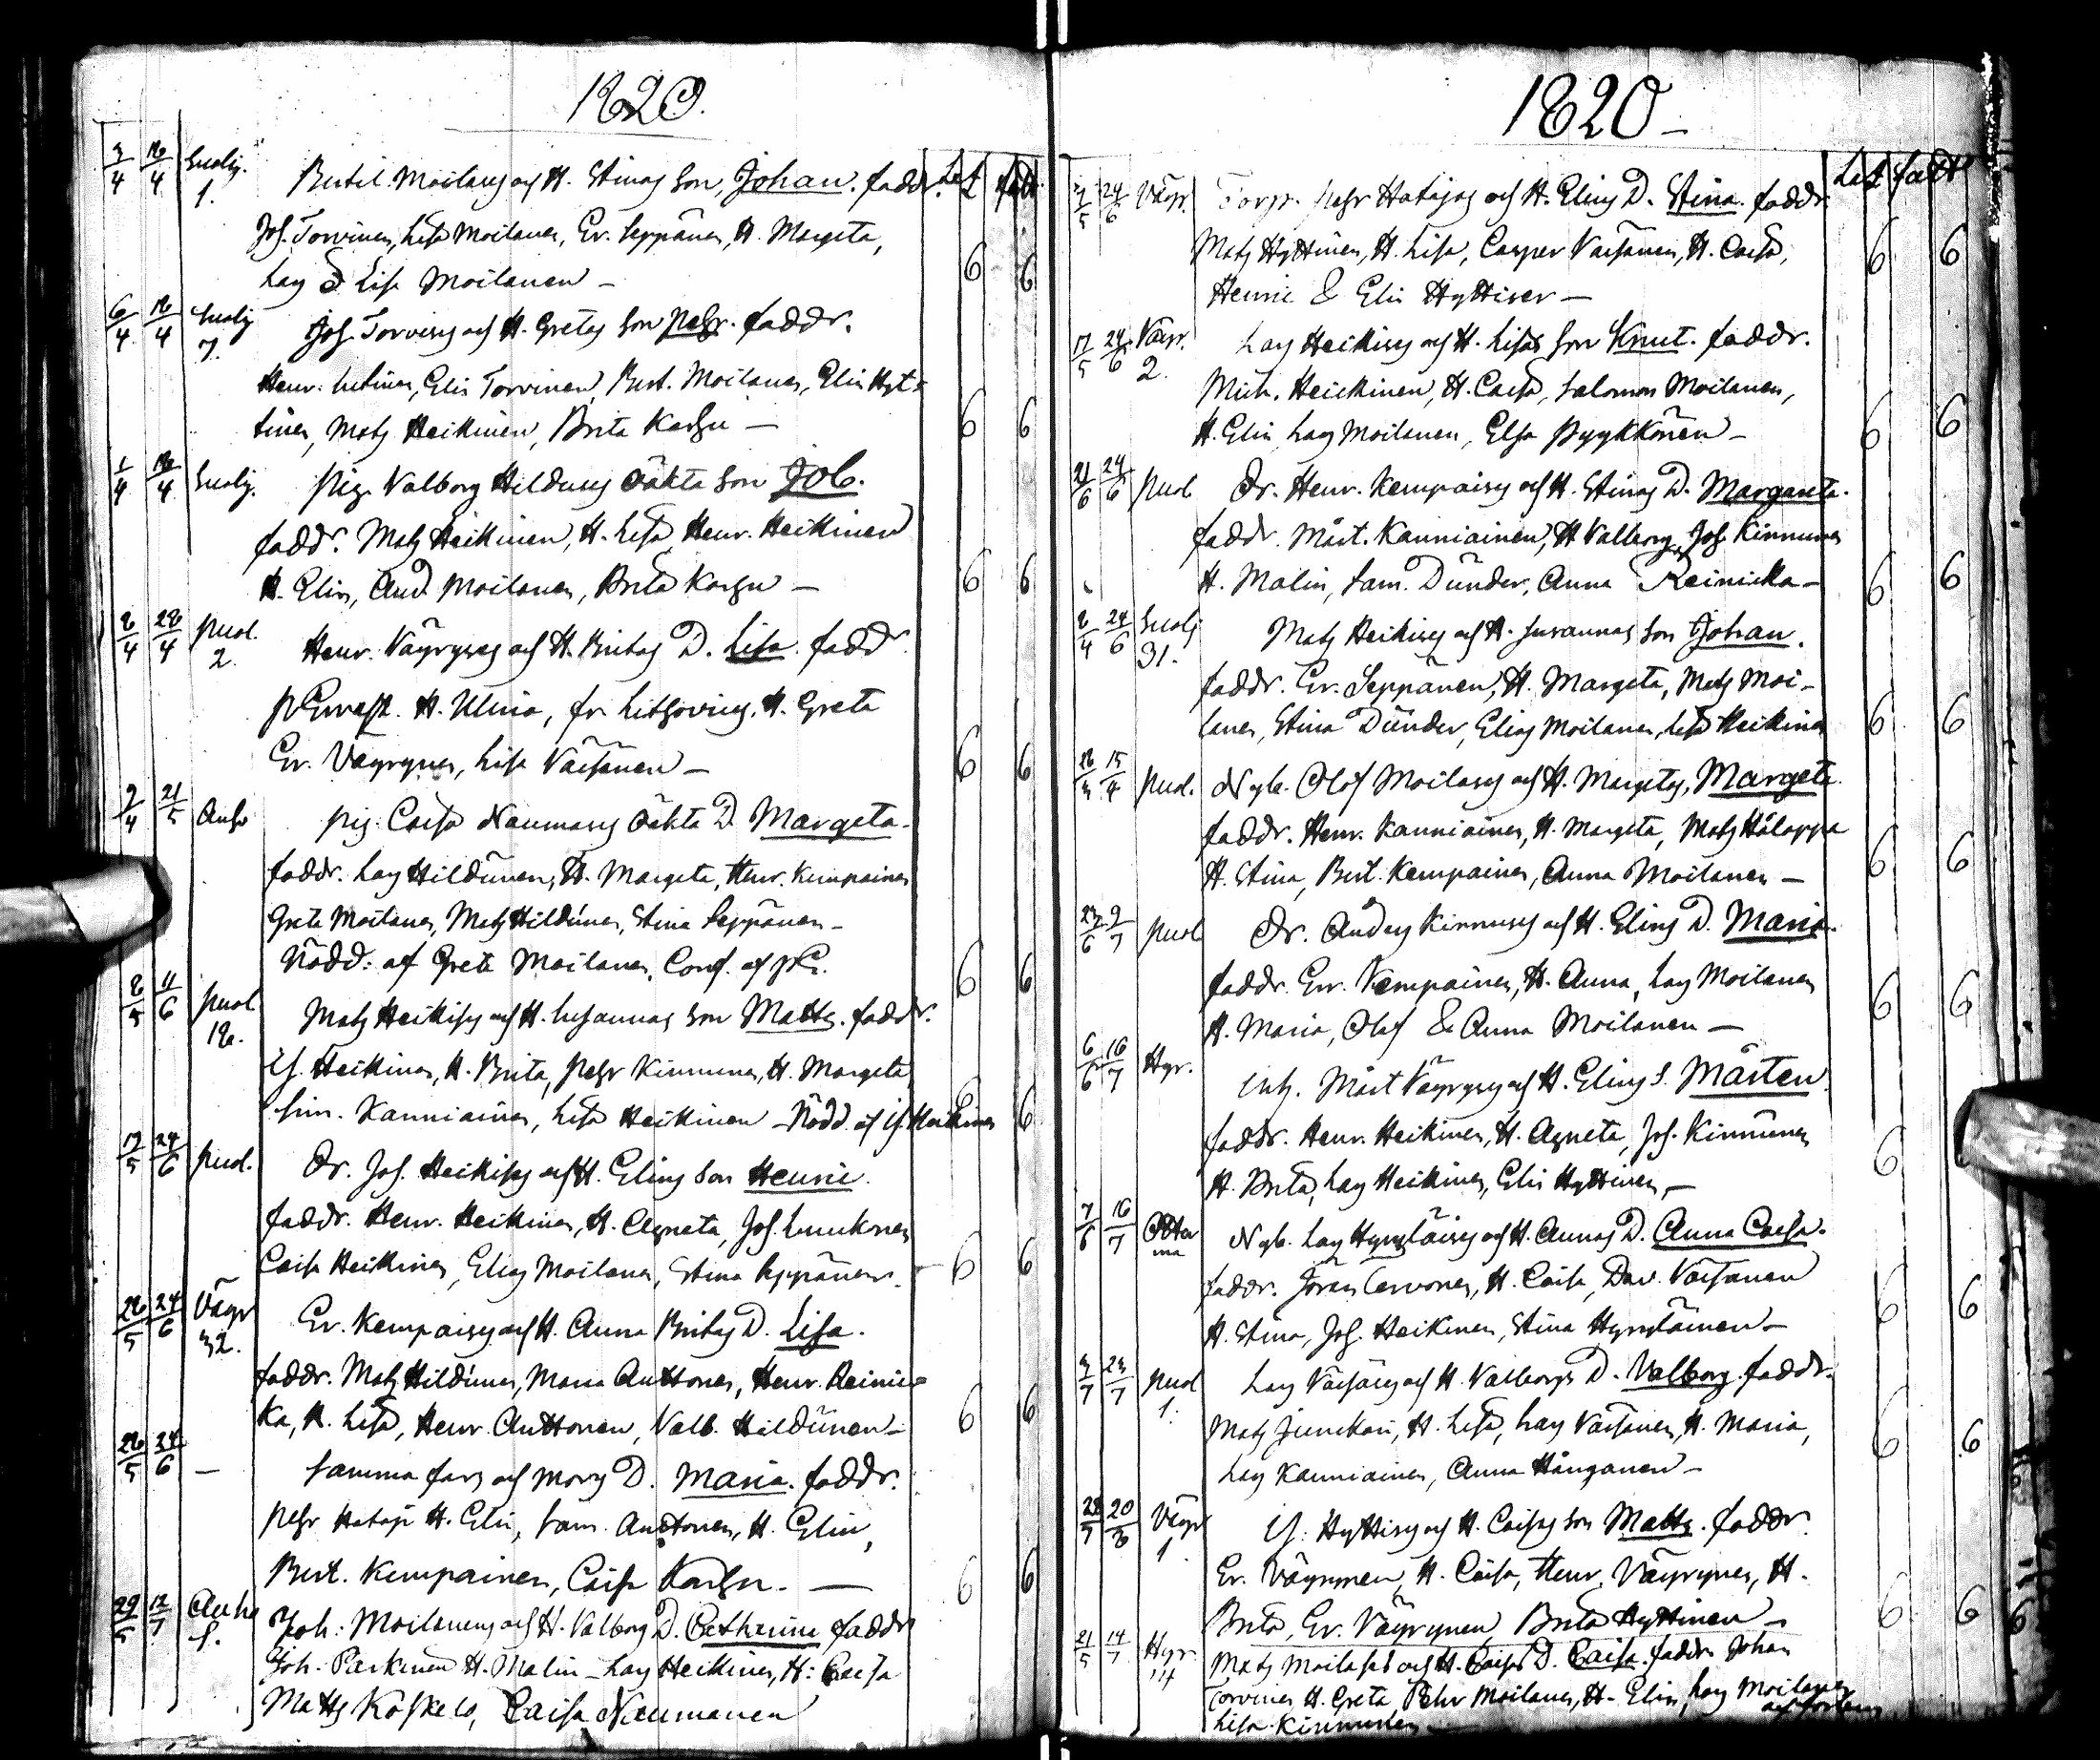 1820.
3/4 16/4 Suolij. 1. Bertil Moilas och H. Stinas Son, Johan. faddr. Let födt
Joh. Torvinen, Lisa Moilanen, Er. Seppänen, H. Margeta,
Lars & Lisa Moilanen – 6 6
6/4 16/4 Suolij 7. Joh. Torvises och H. Gretas Son Pehr. faddr.
Henr. Elin Torvinen, Bert. Moilanen, Elin Hyt-
tinen, Mats Heikinen, Brita Karhu – 6 6
1/4 16/4 Suolij. Pig. Valborg Hilduses oäkta Son Job.
faddr. Mats Heikinen, H. Lisa, Henr. Heikinen
H. Elin, And. Moilanen, Brita Karhu – 6 6
8/4 28/4 Puol. 2. Henr. Väyryses och H. Britas D. Lisa. faddr.
H. Ulrica, H. Greta
Er. Väyrynen, Lisa Väisänen – 6 6
9/4 21/5 Anho Pig. Caisa Naumases oäkta D. Margeta.
faddr. Lars Hildunen, H. Margeta, Henr. Kempainen
Greta Moilanen, Mats Hildunen, Stina Seppänen –
Nödd: af Greta Moilanen. Conf. af 6 6
8/5 11/6 Puol. 18. Mats Heikises och H. Susannas Son Matts. faddr.
Is. Heikinen, H. Brita, Pehr Kinnunen, H. Margeta
Sim. Kanniainen, Lisa Heikinen – Nödd. af Is. Heikinen 6 6
17/5 24/6 Puol. Dr. Joh. Heikises och H. Elins Son Henric.
faddr. Henr. Heikinen, H. Agneta, Joh.
Caisa Heikinen, Elias Moilanen, Stina Seppänen. – 6 6
26/5 24/6 Väyr 32. Er. Kempaises och H. Anna Britas D. Lisa.
faddr. Mats Hildunen, Maria Anttonen, Henr. Reinic-
ka, H. Lisa, Henr. Anttonen, Valb. Hildunen – 6 6
26/5 24/6 – Samma fars och mors D. Maria. faddr.
Pehr Hataja H. Elin, Sam. Anttonen, H. Elin,
Bert. Kempainen, Caisa Karhu. – 6 6
29/5 12/7 Anho Joh: Moilanens och H. Valborg D. Catharina faddr
Joh. Parkinen H. Malin – Lars Heikinen, H: Caisa
Matts Koskelo, Caisa Neumanen
1820 –
24/6 Väyr. Torp. Pehr Hatajas och H. Elins D. Stina. faddr. Let födt
Mats Hyttinen, H. Lisa, Casper Väisänen, H. Caisa,
Henric & Elin Hyttinen – 6 6
17/5 24/6 Väyr. 2. Lars Heikises och H. Lisas Son Knut. faddr.
Mich. Heickinen, H. Caisa, Salomon Moilanen,
H. Elin Lars Moilanen, Elsa Pyykkönen – 6 6
21/6 24/6 Puol Dr. Henr. Kempaises och H. Stinas D. Margareta.
faddr. Mårt. Kanniainen, H Valborg, Joh Kinnunen
H. Malin, Sam. Dunder, Anna Reinicka – 6 6
8/4 24/6 Suolij 31. Mats Heikises och H. Susannas Son Johan.
faddr. Er. Seppänen, H. Margeta, Mats Moi-
lanen, Stina Dunder, Elias Moilanen, Lisa Heikinen 6 6
26/3 15/4 Puol. Nyb. Olof Moilases och H. Margetas, Margeta.
faddr. Henr. Kanniainen, H. Margeta, Mats Hålappa
H. Stina, Bert. Kempainen, Anna Moilanen – 6 6
23/6 9/7 Puol Dr. Anders Kinnuses och H. Elins D. Maria.
faddr. Er. Kempainen, H. Anna, Lars Moilanen
H. Maria, Olof & Anna Moilanen – 6 6
6/6 16/7 Hyr. Mårt Väyryses och H. Elins S. Mårten.
faddr. Henr. Heikinen, H. Agneta, Joh. Kinnunen
H. Brita, Lars Heikinen, Elin Hyttinen, – 6
7/6 16/7 Otterma Nyb. Lars Hyryläises och H. Annas D. Anna Caisa.
faddr. Jöran Cervonen, H. Caisa, Dav. Väisänen
H. Stina, Joh. Heikinen, Stina Hyryläinen – 6 6
3/7 23/7 Puol 1. Lars Väisäses och H. Valborgs D. Valborg. faddr.
Mats Junckari, H. Lisa, Lars Väisänen, H. Maria,
Lars Kanniainen, Anna Hånganen – 6 6
28/7 20/8 Väyr 1 Is: Hyttises och H. Caisas Son Matts. faddr.
Er. Väyrynen, H. Caisa, Henr. Väyrynen, H.
Brita, Er. Väyrynen, Brita Hyttinen – 6 6
21/5 14/7 Hyr 14 Mats Moilases och H. Caisas D. Caisa. faddr Johan
Torvinen H. Greta Pehr Moilanen, H. Elin, Lars Moilanen
Lisa Kinnunen –